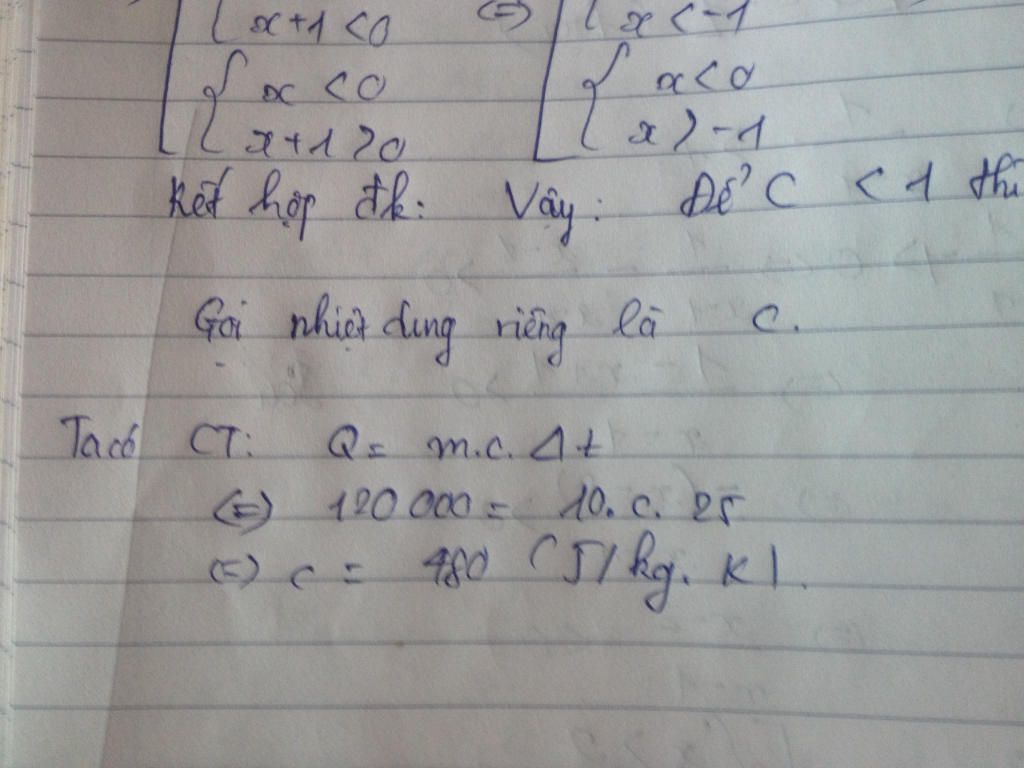 x+1 <0 (=) x < -1
x < 0 x < 0
x+1 > 0 x > -1
Kết hợp đk: Vậy: Để C < 1 thì
Gọi nhiệt dung riêng là c.
Ta có CT: Q = m.c. Δt
(=) 120 000 = 10. c. 25
(=) c = 480 (J/kg. K).